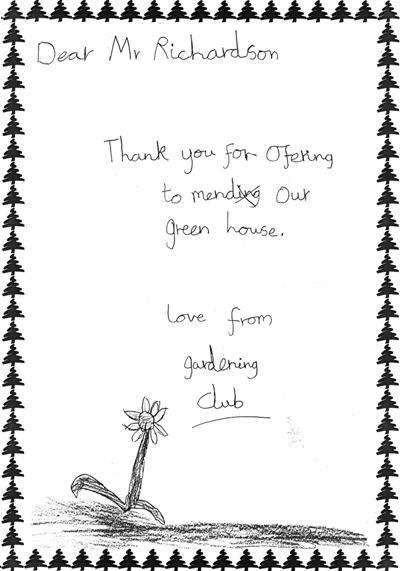 Dear Mr Richardson
Thank you for Ofering
to mending our
green house.
love from
gardening
club